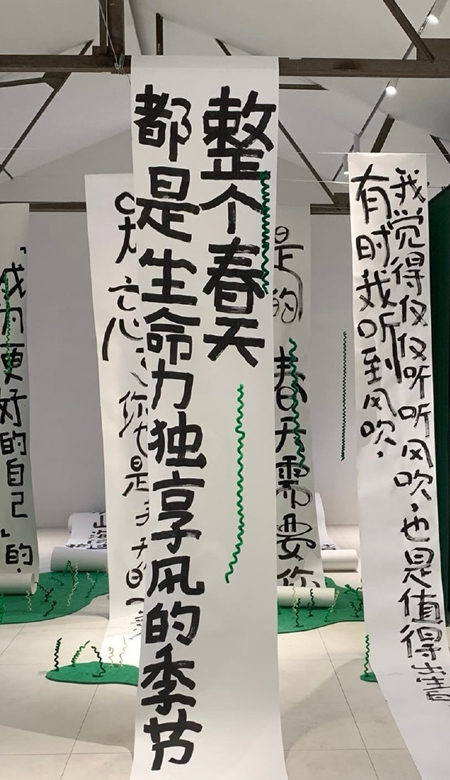 整个春天
都是生命力独享风的季节
我觉得仅仅听听风吹,也是值得出
有时我听到风吹,
是的
春天需要你
你也是
成为更好的自己
的.